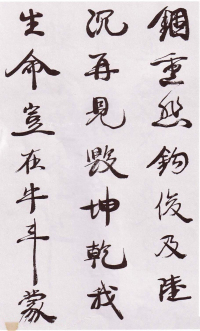 錮重愁鉤俊及陸
沉再見毀坤乾我
生命豈在牛斗蒙